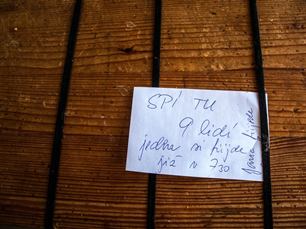 SPÍ TU
9 lidí
jedna si přijde
již v 7³⁰